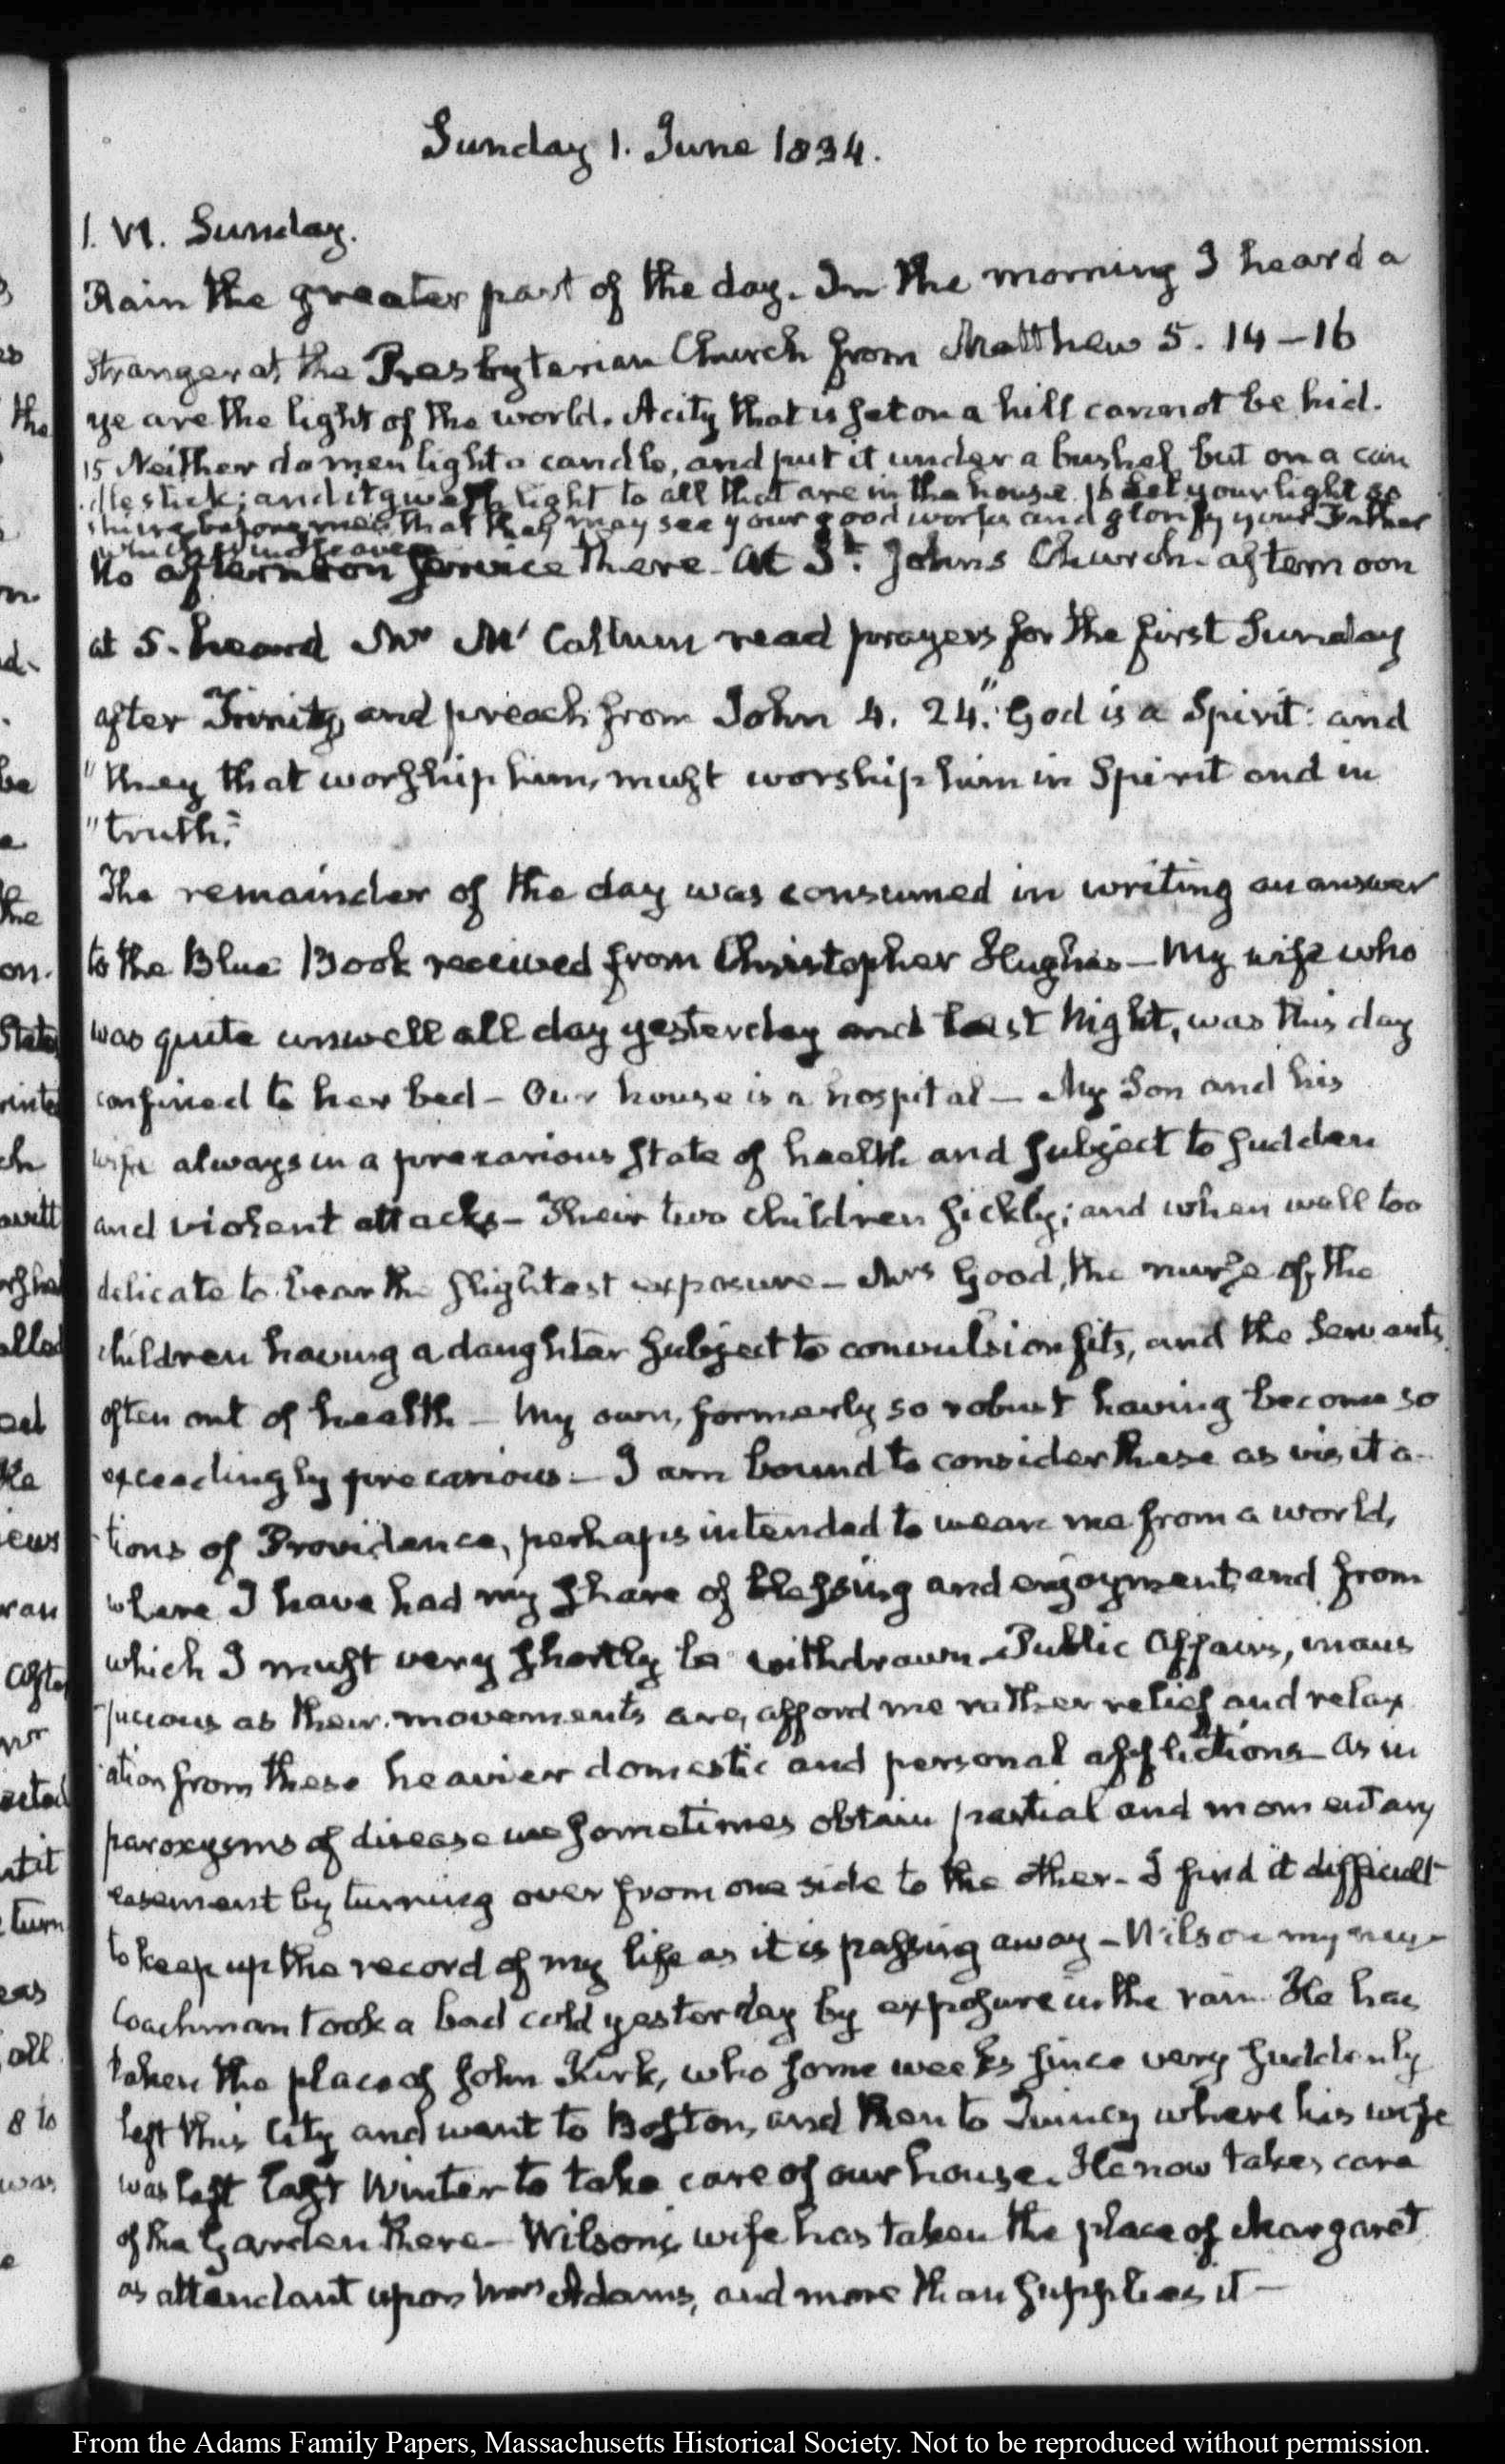 Sunday 1. June 1834.
1. VI. Sunday.
Rain the greater part of the day. In the morning I heard a
stranger at the Presbyterian Church from Matthew 5. 14-16
ye are the light of the world. A city that is set on a hill cannot be hid.
15 Neither do men light a candle, and put it under a bushel but on a can
dlestick; and it giveth light to all that are in the house. 16 Let your light so
shine before men that they may see your good works and glorify your Father
which is in heaven
No afternoon service there. At St. Johns Church. afternoon
at 5. heard Mr McCallum read prayers for the first Sunday
after Trinity, and preach from John 4. 24. "God is a Spirit: and
"they that worship him, must worship him in Spirit and in
"truth."
The remainder of the day was consumed in writing an answer
to the Blue Book received from Christopher Hughes - My wife who
was quite unwell all day yesterday and last Night, was this day
confined to her bed - Our house is a hospital - My Son and his
wife always in a precarious state of health and subject to sudden
and violent attacks - Their two children sickly; and when well too
delicate to bear the slightest exposure - Mrs Good, the nurse of the
children having a daughter subject to convulsion fits, and the Servants
often out of health - My own, formerly so robust having become so
exceedingly precarious - I am bound to consider these as visita-
tions of Providence, perhaps intended to wean me from a world,
where I have had my share of blessing and enjoyment, and from
which I must very shortly be withdrawn. Public Affairs, inaus
picious as their movements are, afford me rather relief and relax
ation from these heavier domestic and personal afflictions - as in
paroxysms of disease we sometimes obtain partial and momentary
easement by turning over from one side to the other - I find it difficult
to keep up the record of my life as it is passing away - Wilson my new
Coachman took a bad cold yesterday by exposure in the rain. He has
taken the place of John Kirk, who some weeks since very suddenly
left this City and went to Boston, and then to Quincy where his wife
was left last Winter to take care of our house. He now takes care
of the Garden there - Wilson's wife has taken the place of Margaret
as attendant upon Mrs Adams, and more than supplies it -
the
on.
State
all
8 to
was
From the Adams Family Papers, Massachusetts Historical Society. Not to be reproduced without permission.